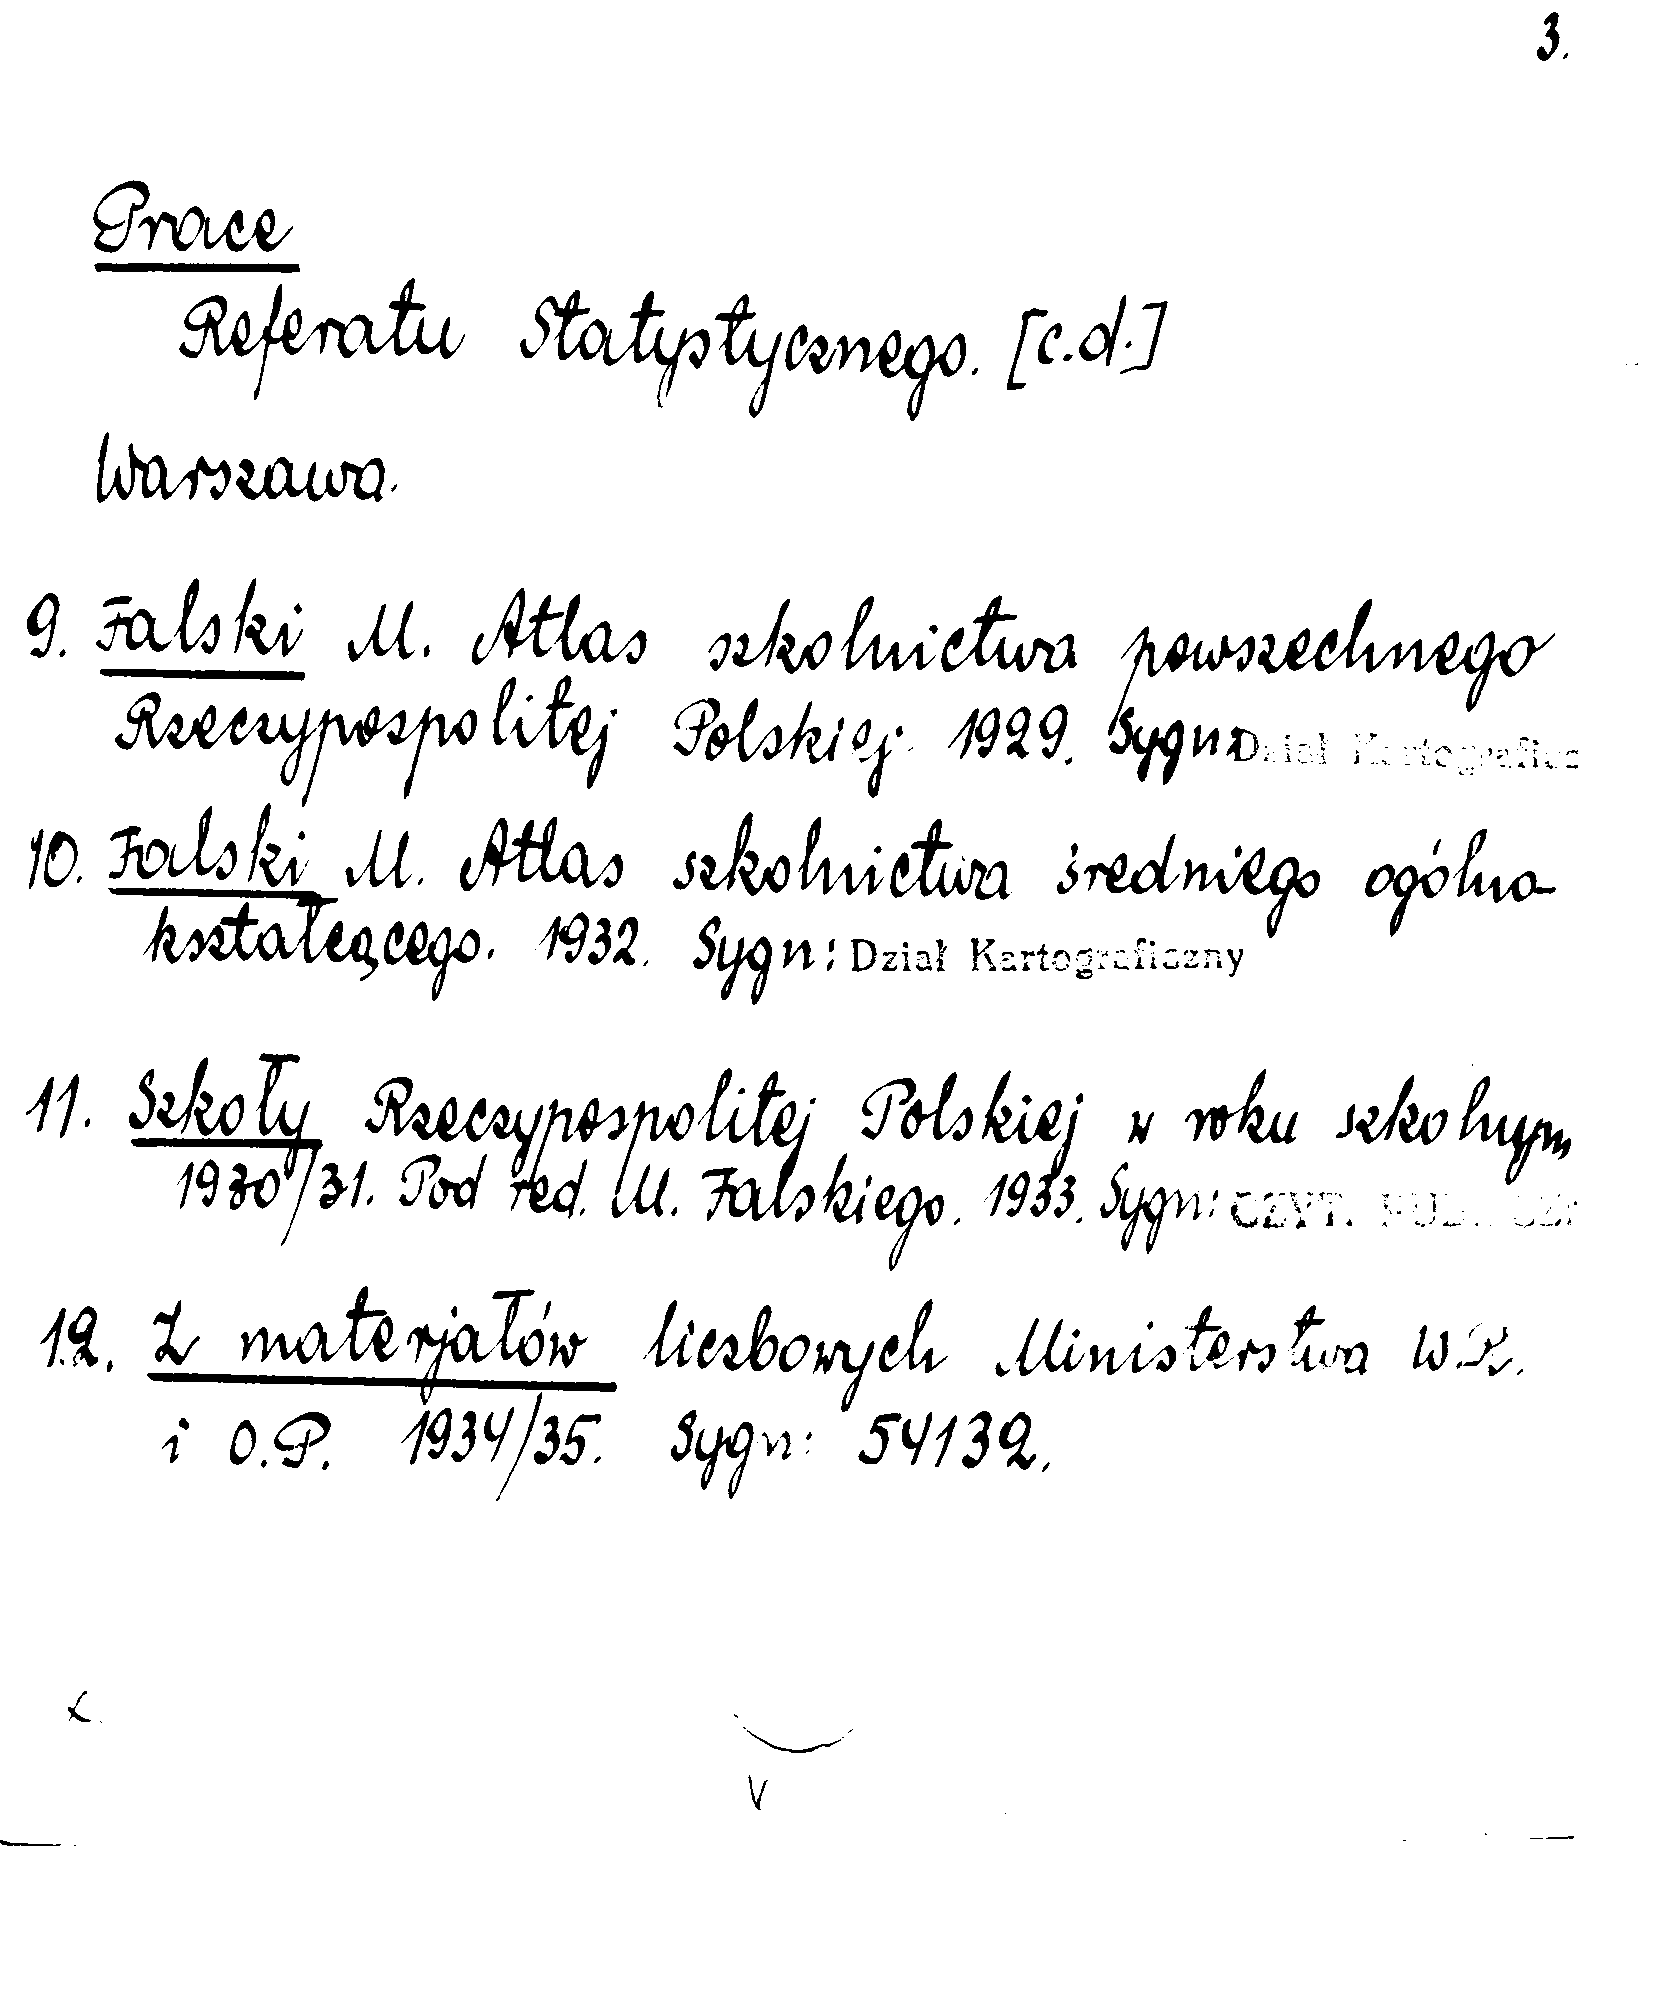 3.
Prace
Referatu Statystycznego. [c.d.]
Warszawa.
9. Falski M. Atlas szkolnictwa powszechnego
Rzeczypospolitej Polskiej. 1929. Sygn: Dział Kartograficz
10. Falski M. Atlas szkolnictwa średniego ogólno-
kształcącego. 1932. Sygn: Dział Kartograficzny
11. Szkoły Rzeczypospolitej Polskiej w roku szkolnym
1930/31. Pod red. M. Falskiego. 1933. Sygn: CZYT.
12. Z materjałów liczbowych Ministerstwa W.R.
i O.P. 1934/35. Sygn: 54132.